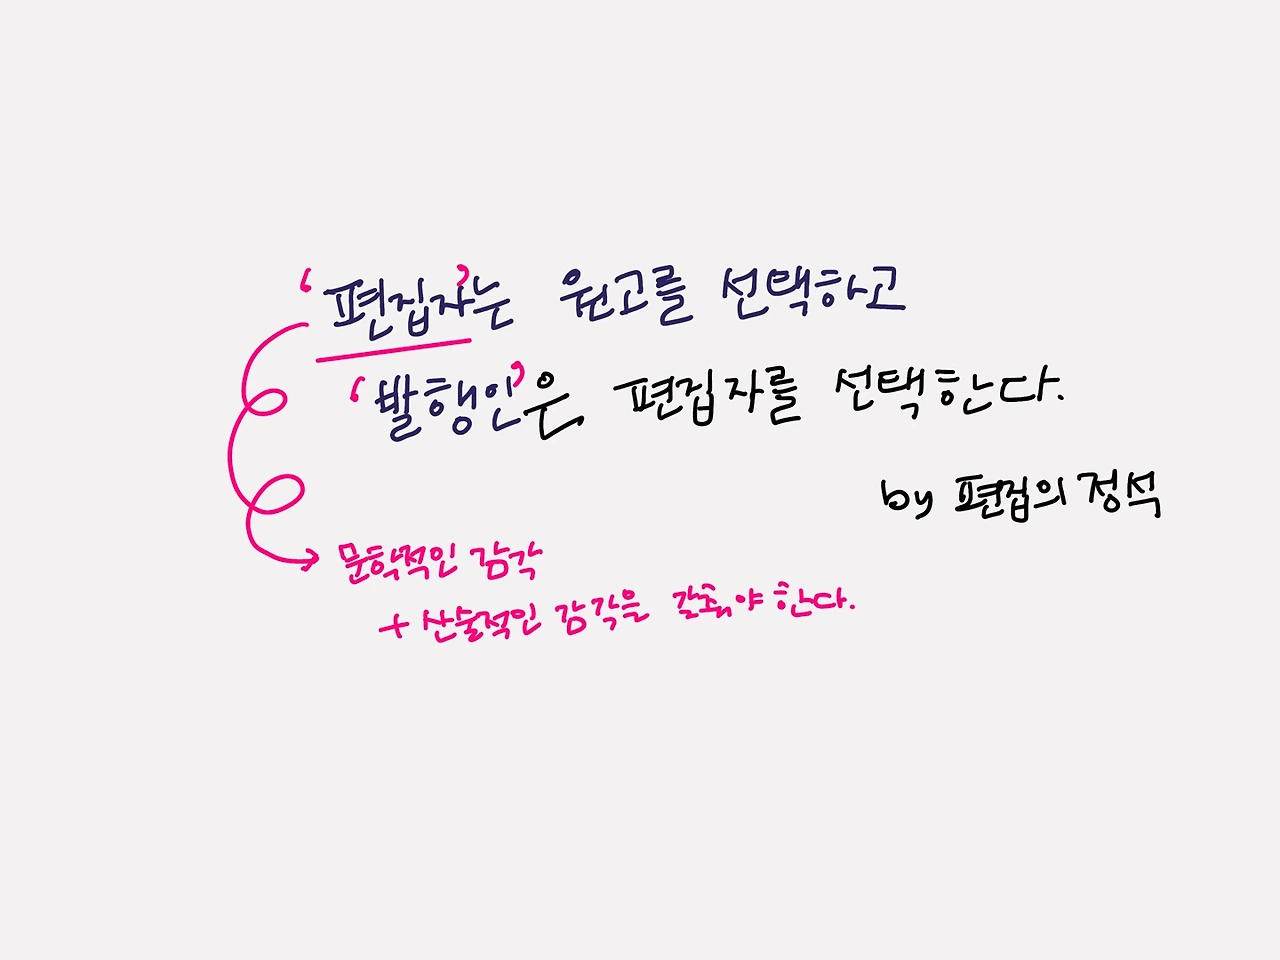 '편집자'는 원고를 선택하고
'발행인'은 편집자를 선택한다.
by 편집의 정석
문학적인 감각
+ 산술적인 감각을 갖춰야 한다.